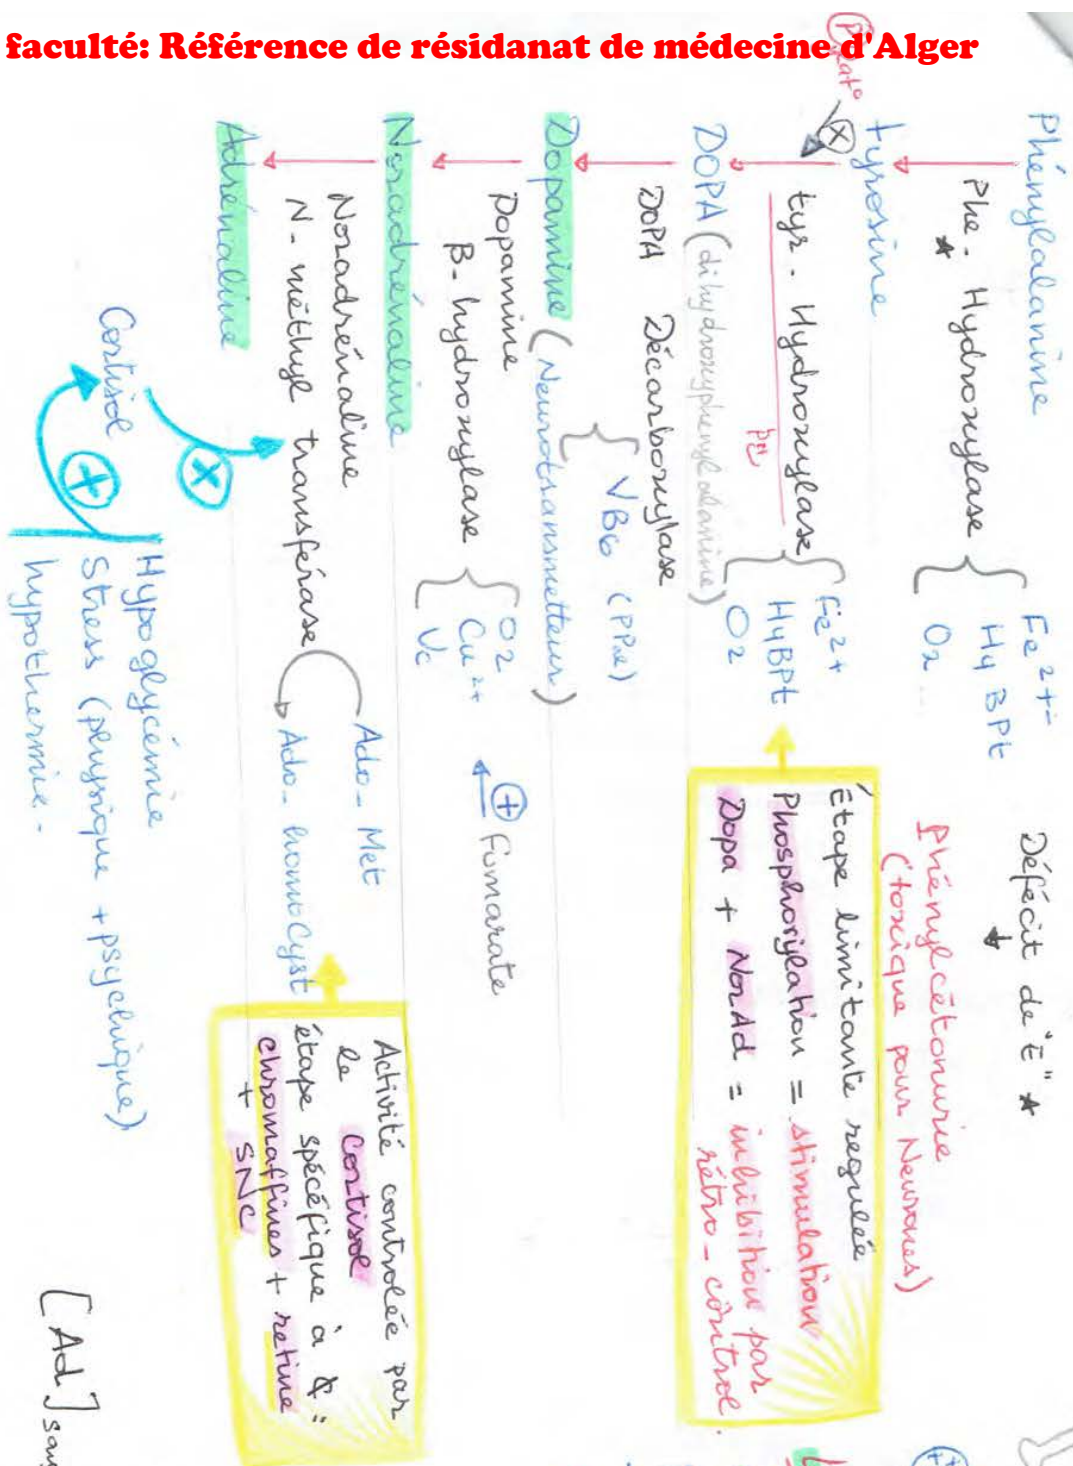 faculté: Référence de résidanat de médecine d'Alger
Phénylalanine
Phe. Hydroxylase
★
Fe²⁺
H4 BPt
O₂
Défécit de "E" ★
Phénylcétonurie
(toxique pour Neurones)
tyrosine
Ⓟhat°
ⓧ
tyr. Hydroxylase
Fe²⁺
H4BPt
O₂
Étape limitante regulée
Phosphorylation = stimulation
Dopa + NorAd = inhibition par
rétro-contrôl
DOPA (dihydroxyphenylalanine)
DOPA Décarboxylase
VB6 (PPal)
Dopamine (Neurotransmetteur)
Dopamine
B-hydroxylase
O2
Cu²⁺
Vc
⊕ Fumarate
Noradrénaline
Noradrénaline
N-méthyl transférase
Ado-Met
Ado-homoCyst
Activité controlée par
le Cortisol
étape spécéfique à ¢ =
chromaffines + retine
+ SNC
Adrénaline
Cortisol
ⓧ
⊕
Hypoglycémie
Stress (physique + psychique)
hypothermie.
[Ad]